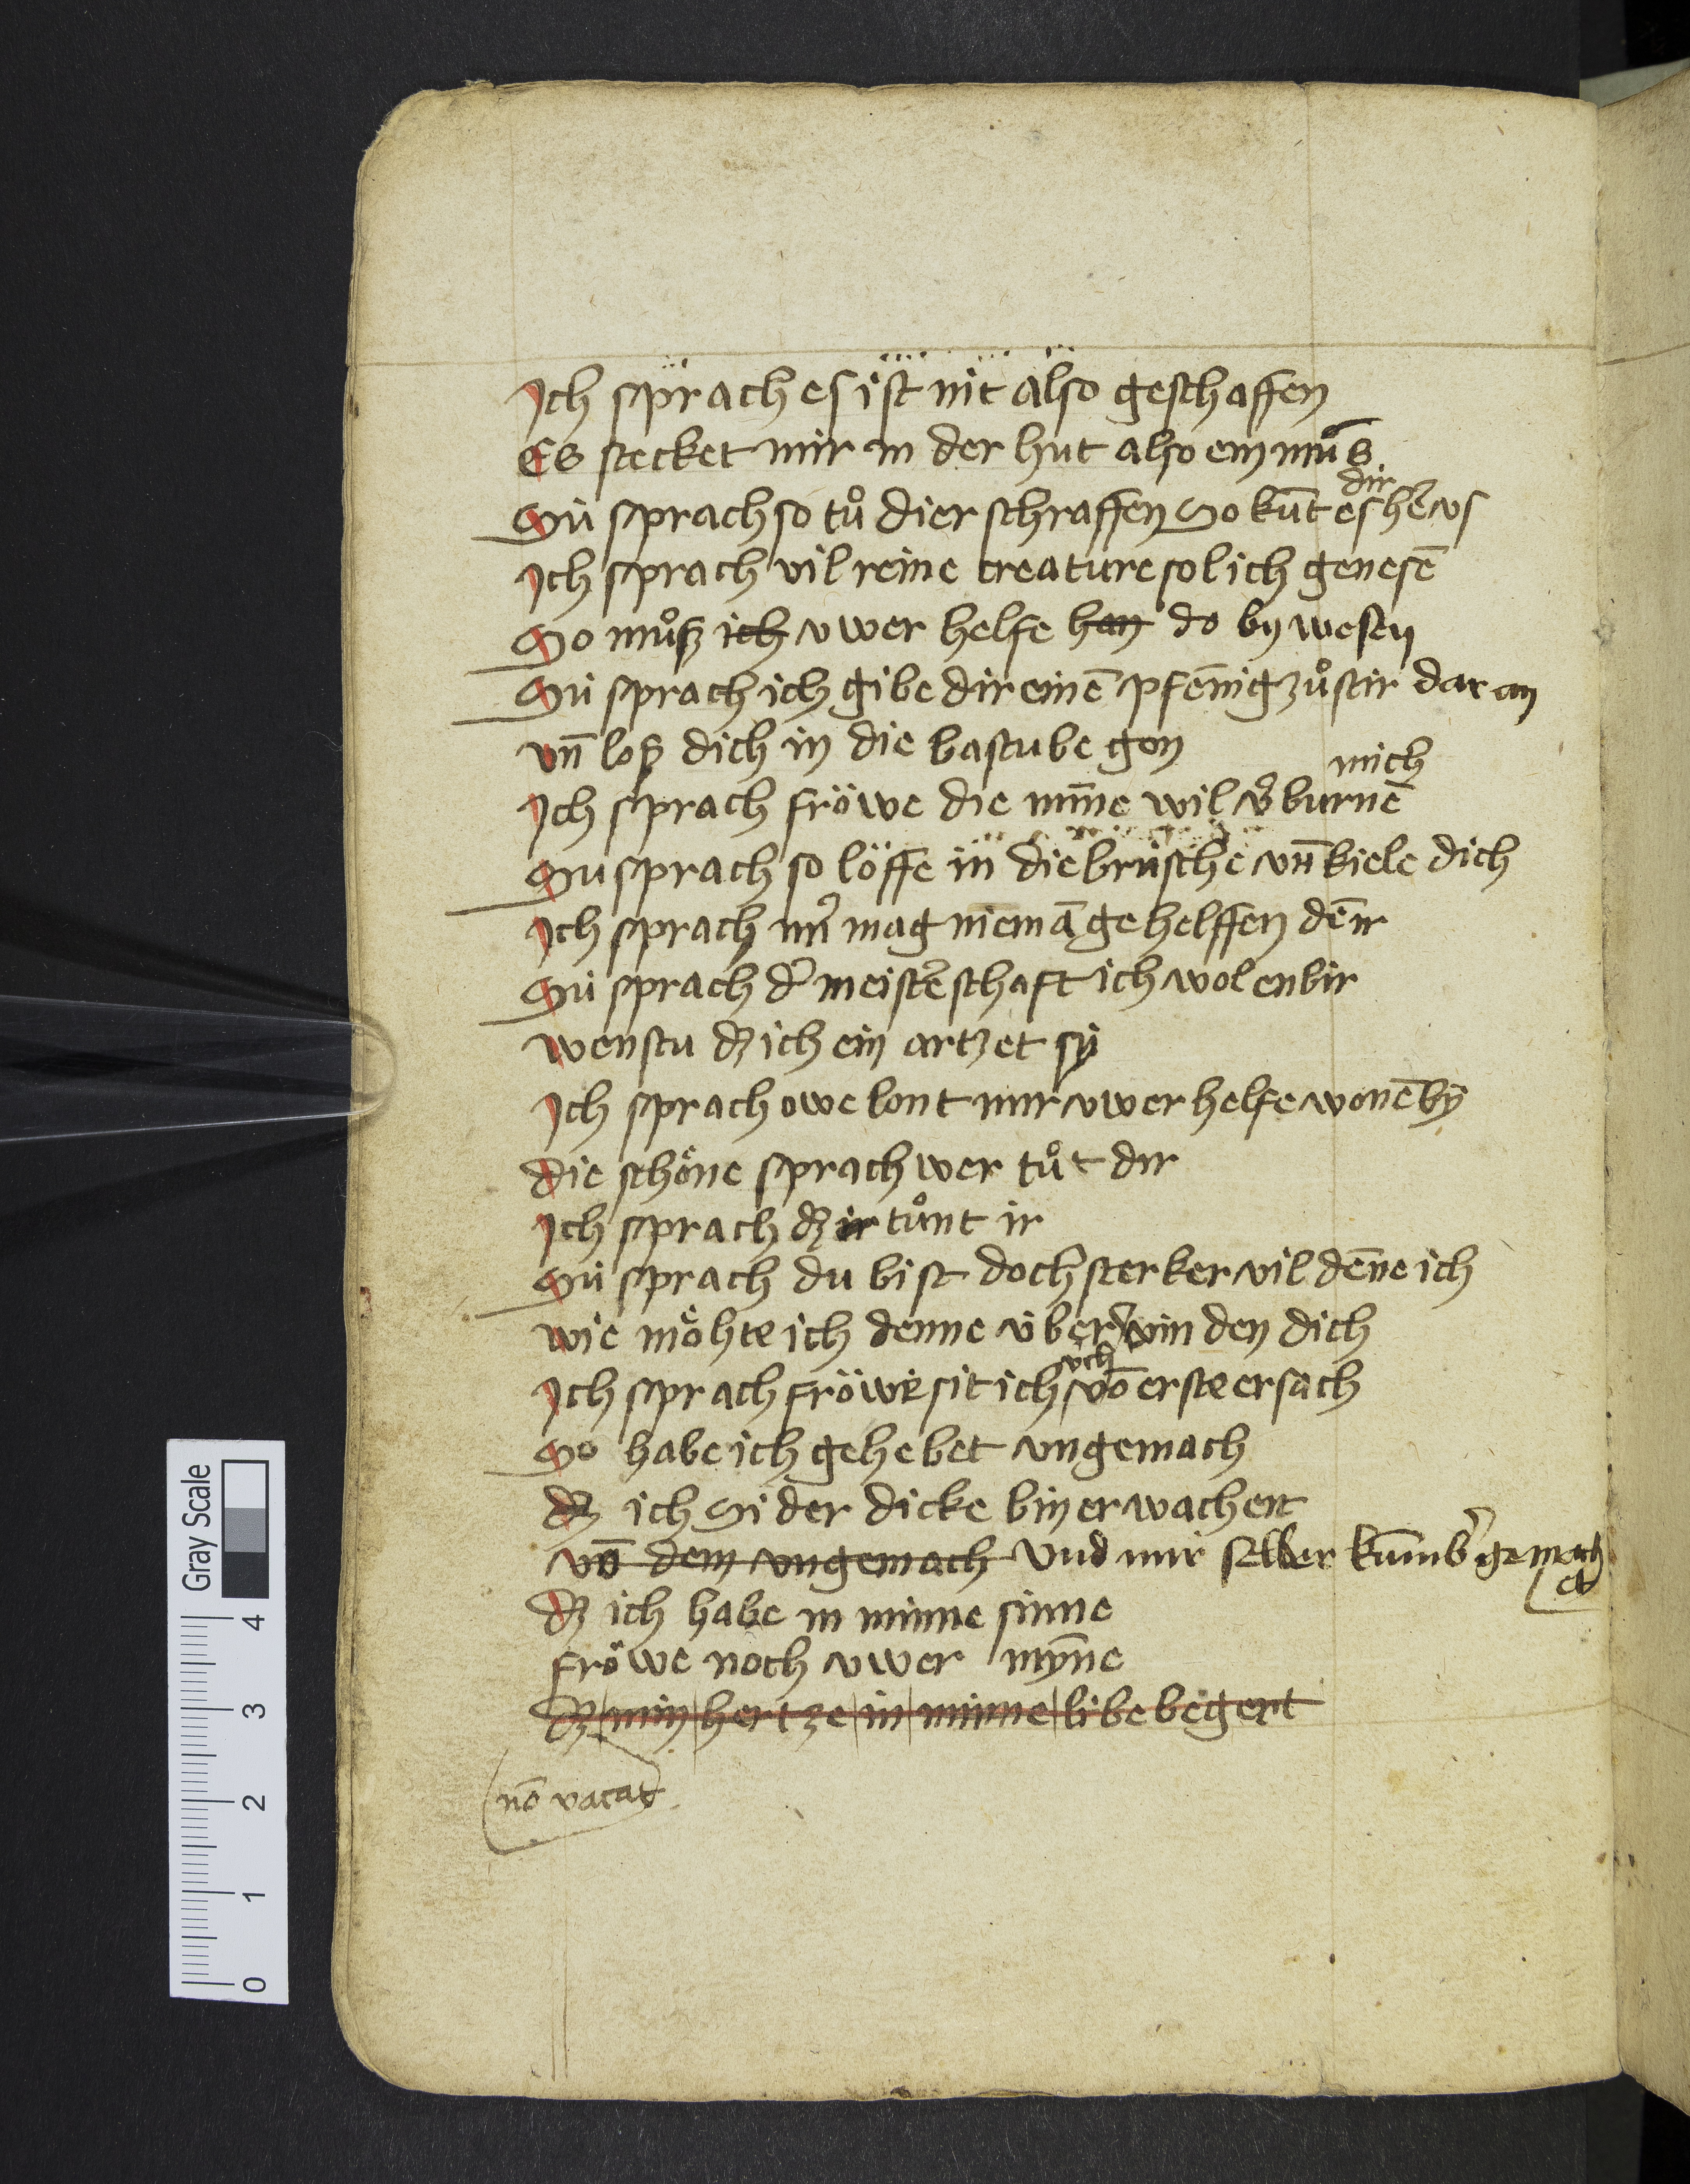 Ich sprach es ist nit also geschaffen
Es stecket mir in der hut also ein mus
Sü sprach so tůo dier schraffen So kūt es dir her vs
Ich sprach vil reine creature sol ich genesē
So můß ich vwer helfe han do by wesen
Sü sprach ich gibe dir einē pfēnig zů stir dar an
vn̄ loß dich in die bastube gon
Ich sprach fröwe die mīne wil mich v'burnē
Su sprach so löffe in die brüsche vn̄ kiele dich
Ich sprach mir mag niemā gehelffen dē ir
Sü sprach d' meisterschaft ich wol enbir
wenstu dz ich ein artzet sy
Ich sprach owe lont mir vwer helfe wonē by
die schöne sprach wer tůt dir
Ich sprach dz ir tůnt ir
Sü sprach du bist doch sterker vil dēne ich
wie möhte ich denne vber win den dich
Ich sprach fröwe sit ich vch vō erste ersach
So habe ich gehebet vngemach
dz ich Si der dicke bin erwachert
vō dem vngemach Vnd mir selber kūmb' gemach
et
dz ich habe in minne sinne
fröwe noch vwer mȳne
dz min hertze in minne libe begert
nō vacat
Gray Scale
0 1 2 3 4